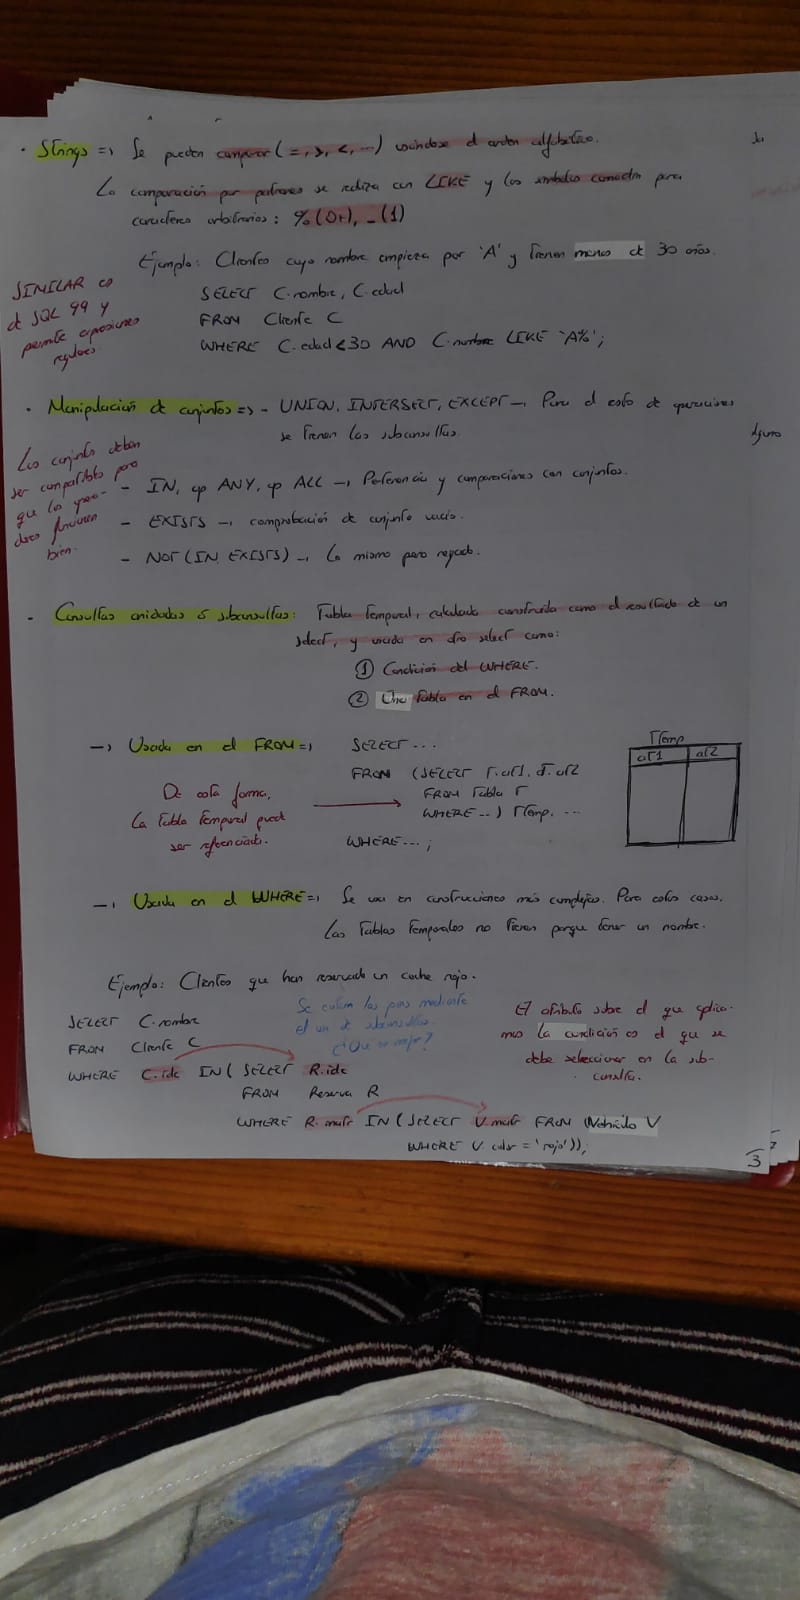 · Strings => Se pueden comparar (=, >, <, ...) usándose el orden alfabético.
La comparación por patrones se realiza con LIKE y los símbolos comodín para
caracteres arbitrarios: % (0+), _ (1)
Ejemplo: Clientes cuyo nombre empieza por 'A' y tienen menos de 30 años.
SIMILAR es
de SQL 99 y
permite expresiones
regulares.
SELECT C.nombre, C.edad
FROM Cliente C
WHERE C.edad<30 AND C.nombre LIKE 'A%';
· Manipulación de conjuntos => - UNION, INTERSECT, EXCEPT → Para el resto de operaciones
se tienen las subconsultas.
Los conjuntos deben
ser compatibles para
que las opera-
ciones funcionen
bien.
- IN, op ANY, op ALL → Pertenencia y comparaciones con conjuntos.
- EXISTS → comprobación de conjunto vacío.
- NOT (IN, EXISTS) → Lo mismo pero negado.
· Consultas anidadas o subconsultas: Tabla temporal, calculada construida como el resultado de un
select, y usada en otro select como:
① Condición del WHERE.
② Una tabla en el FROM.
→ Usada en el FROM => SELECT ...
FROM (SELECT T.at1, T.at2
FROM Tabla T
WHERE ...) TTemp, ...
WHERE ... ;
De esta forma,
la tabla temporal puede
ser referenciada.
TTemp
at1 at2
→ Usada en el WHERE => Se usa en construcciones más complejas. Para estos casos,
las tablas temporales no tienen porque tener un nombre.
Ejemplo: Clientes que han reservado un coche rojo.
Se evitan los joins mediante
el uso de subconsultas.
¿Qué es mejor?
El atributo sobre el que aplica-
mos la condición es el que se
debe seleccionar en la sub-
consulta.
SELECT C.nombre
FROM Cliente C
WHERE C.idc IN (SELECT R.idc
FROM Reserva R
WHERE R.matr IN (SELECT V.matr FROM Vehículo V
WHERE V.color = 'rojo'));
3